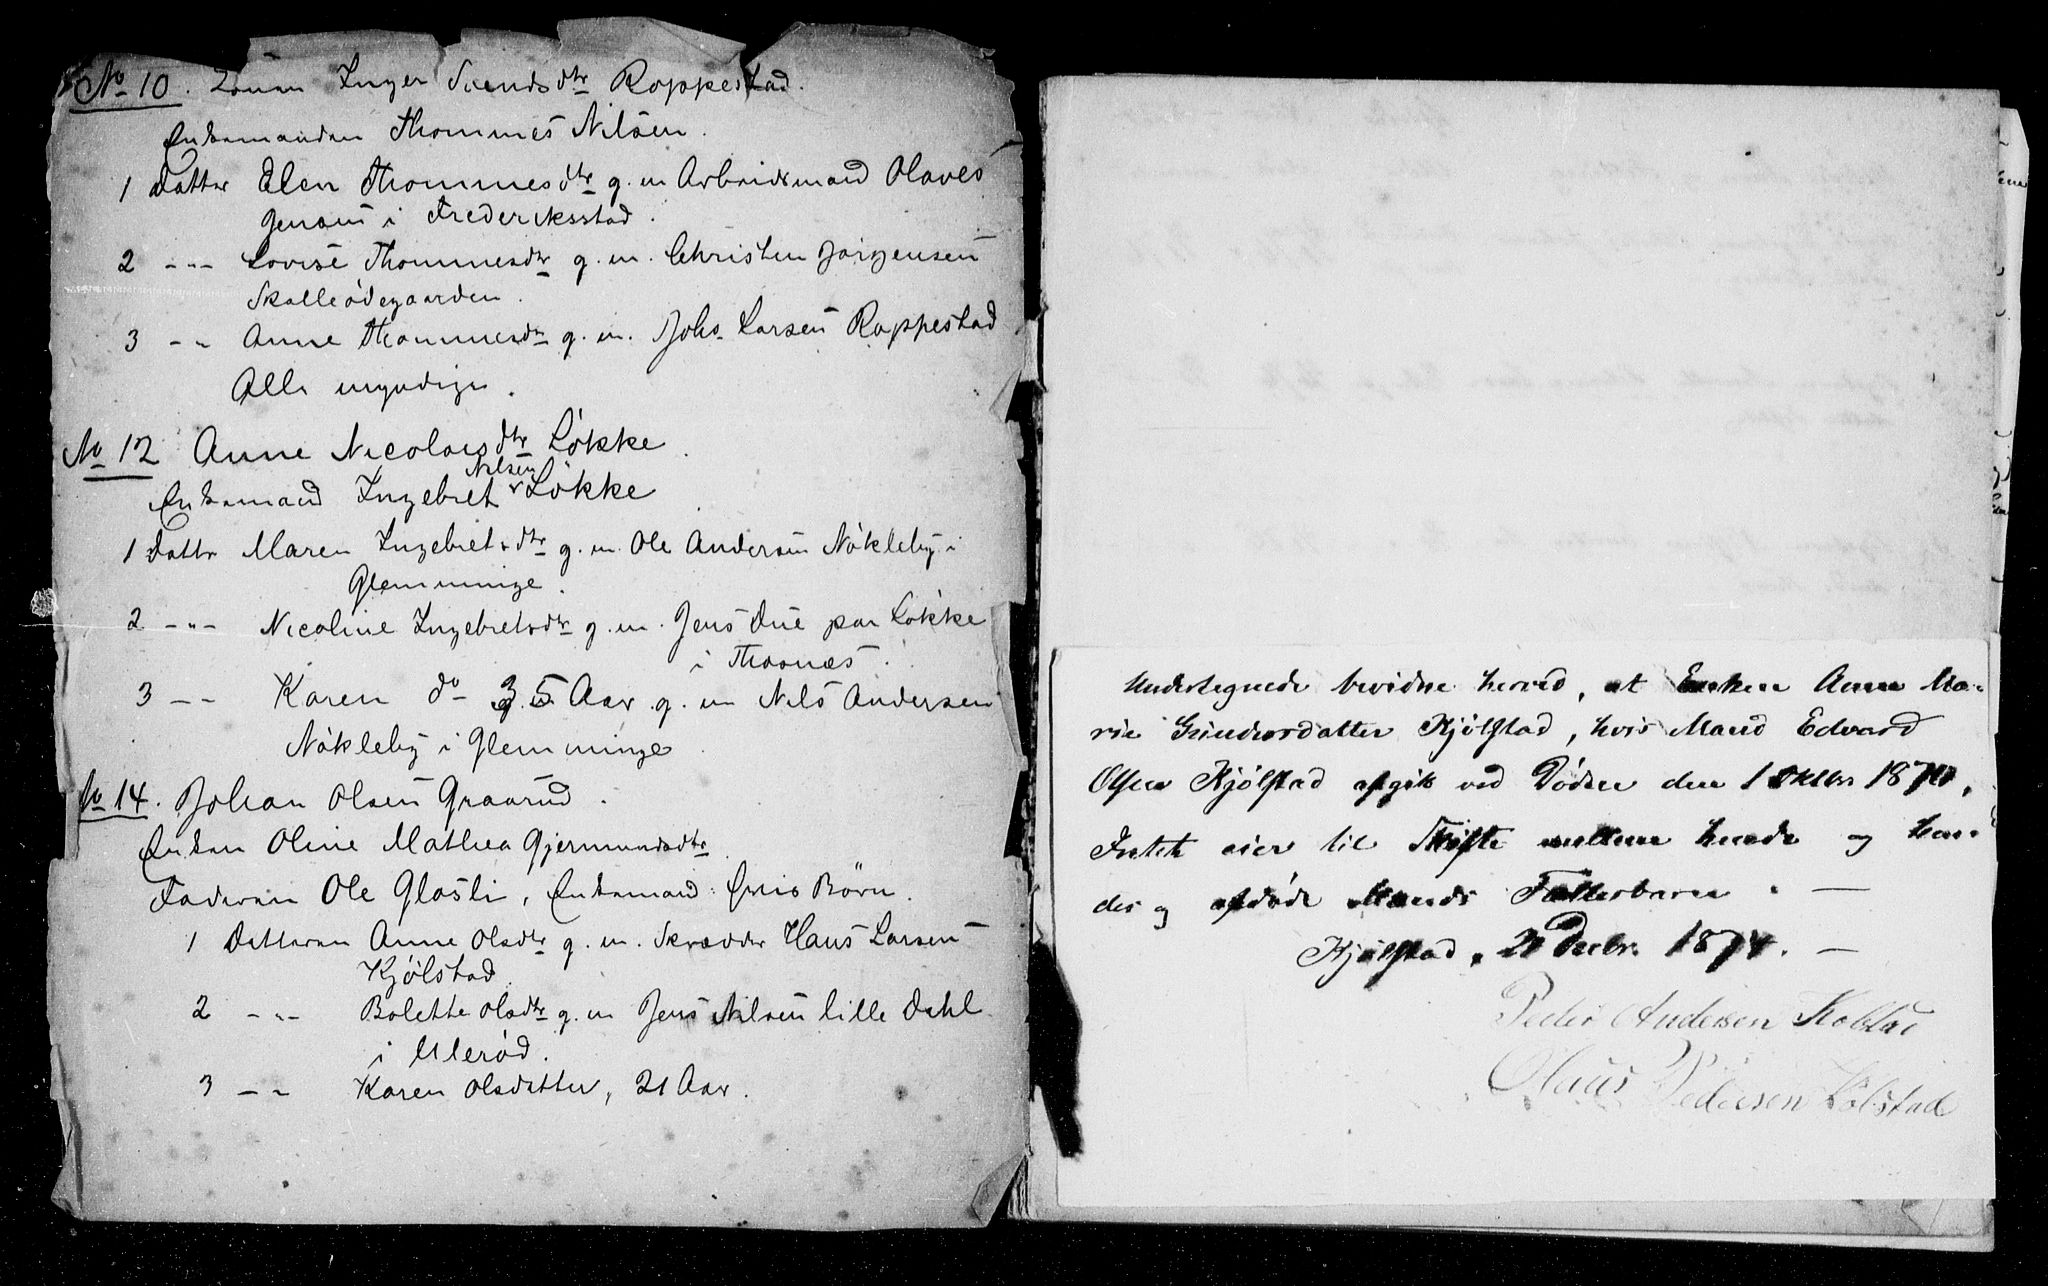 No 10. Inger Svendsdtr Roppestad.
Enkemanden Thommes Nilsen.
1 Datter Elen Thommesdtr g. m Arbeidsmand Olaves
Jensen i Frederiksstad.
2 -"- Lovise Thommesdtr g. m. Christen Jørgensen
Skalleødegaarden.
3 -"- Anne Thommesdtr g. m. Johs. Larsen Roppestad
Alle myndige.
No 12 Anne Nicolaisdtr Løkke.
Enkemand Ingebret Nilsen Løkke
1 Datter Maren Ingebretsdtr g. m. Ole Andersen Nøkleby i
Glemminge.
2 -"- Nicoline Ingebretsdtr g. m. Jens Due paa Løkke
i Thorsnæs.
3 -"- Karen do 35 Aar g. m Nils Andersen
Nøkleby i Glemminge.
No 14. Johan Olsen Graarud.
Enken Oline Mathea Gjermundsdtr.
Faderen Ole Glosli, Enkemand: hvis Børn.
1 Datteren Anne Olsdtr g. m. Skrædder Hans Larsen
Kjølstad.
2 -"- Bolette Olsdtr g. m Jens Nilsen lille Dahl
i Ullerød.
3 -"- Karen Olsdatter, 21 Aar.
Undertegnede bevidne herved, at Enken Anne Ma-
rie Gundersdatter Kjølstad, hvis Mand Edvard
Olsen Kjølstad afgik ved Døden den 1 Oktbr. 1874,
Intet eier til Skifte mellem hende og hen-
des og afdøde Mands Fællesbørn. —
Kjølstad, 21 Decbr. 1874. —
Peder Andersen Kolstad
Olaus Pedersen Kolstad